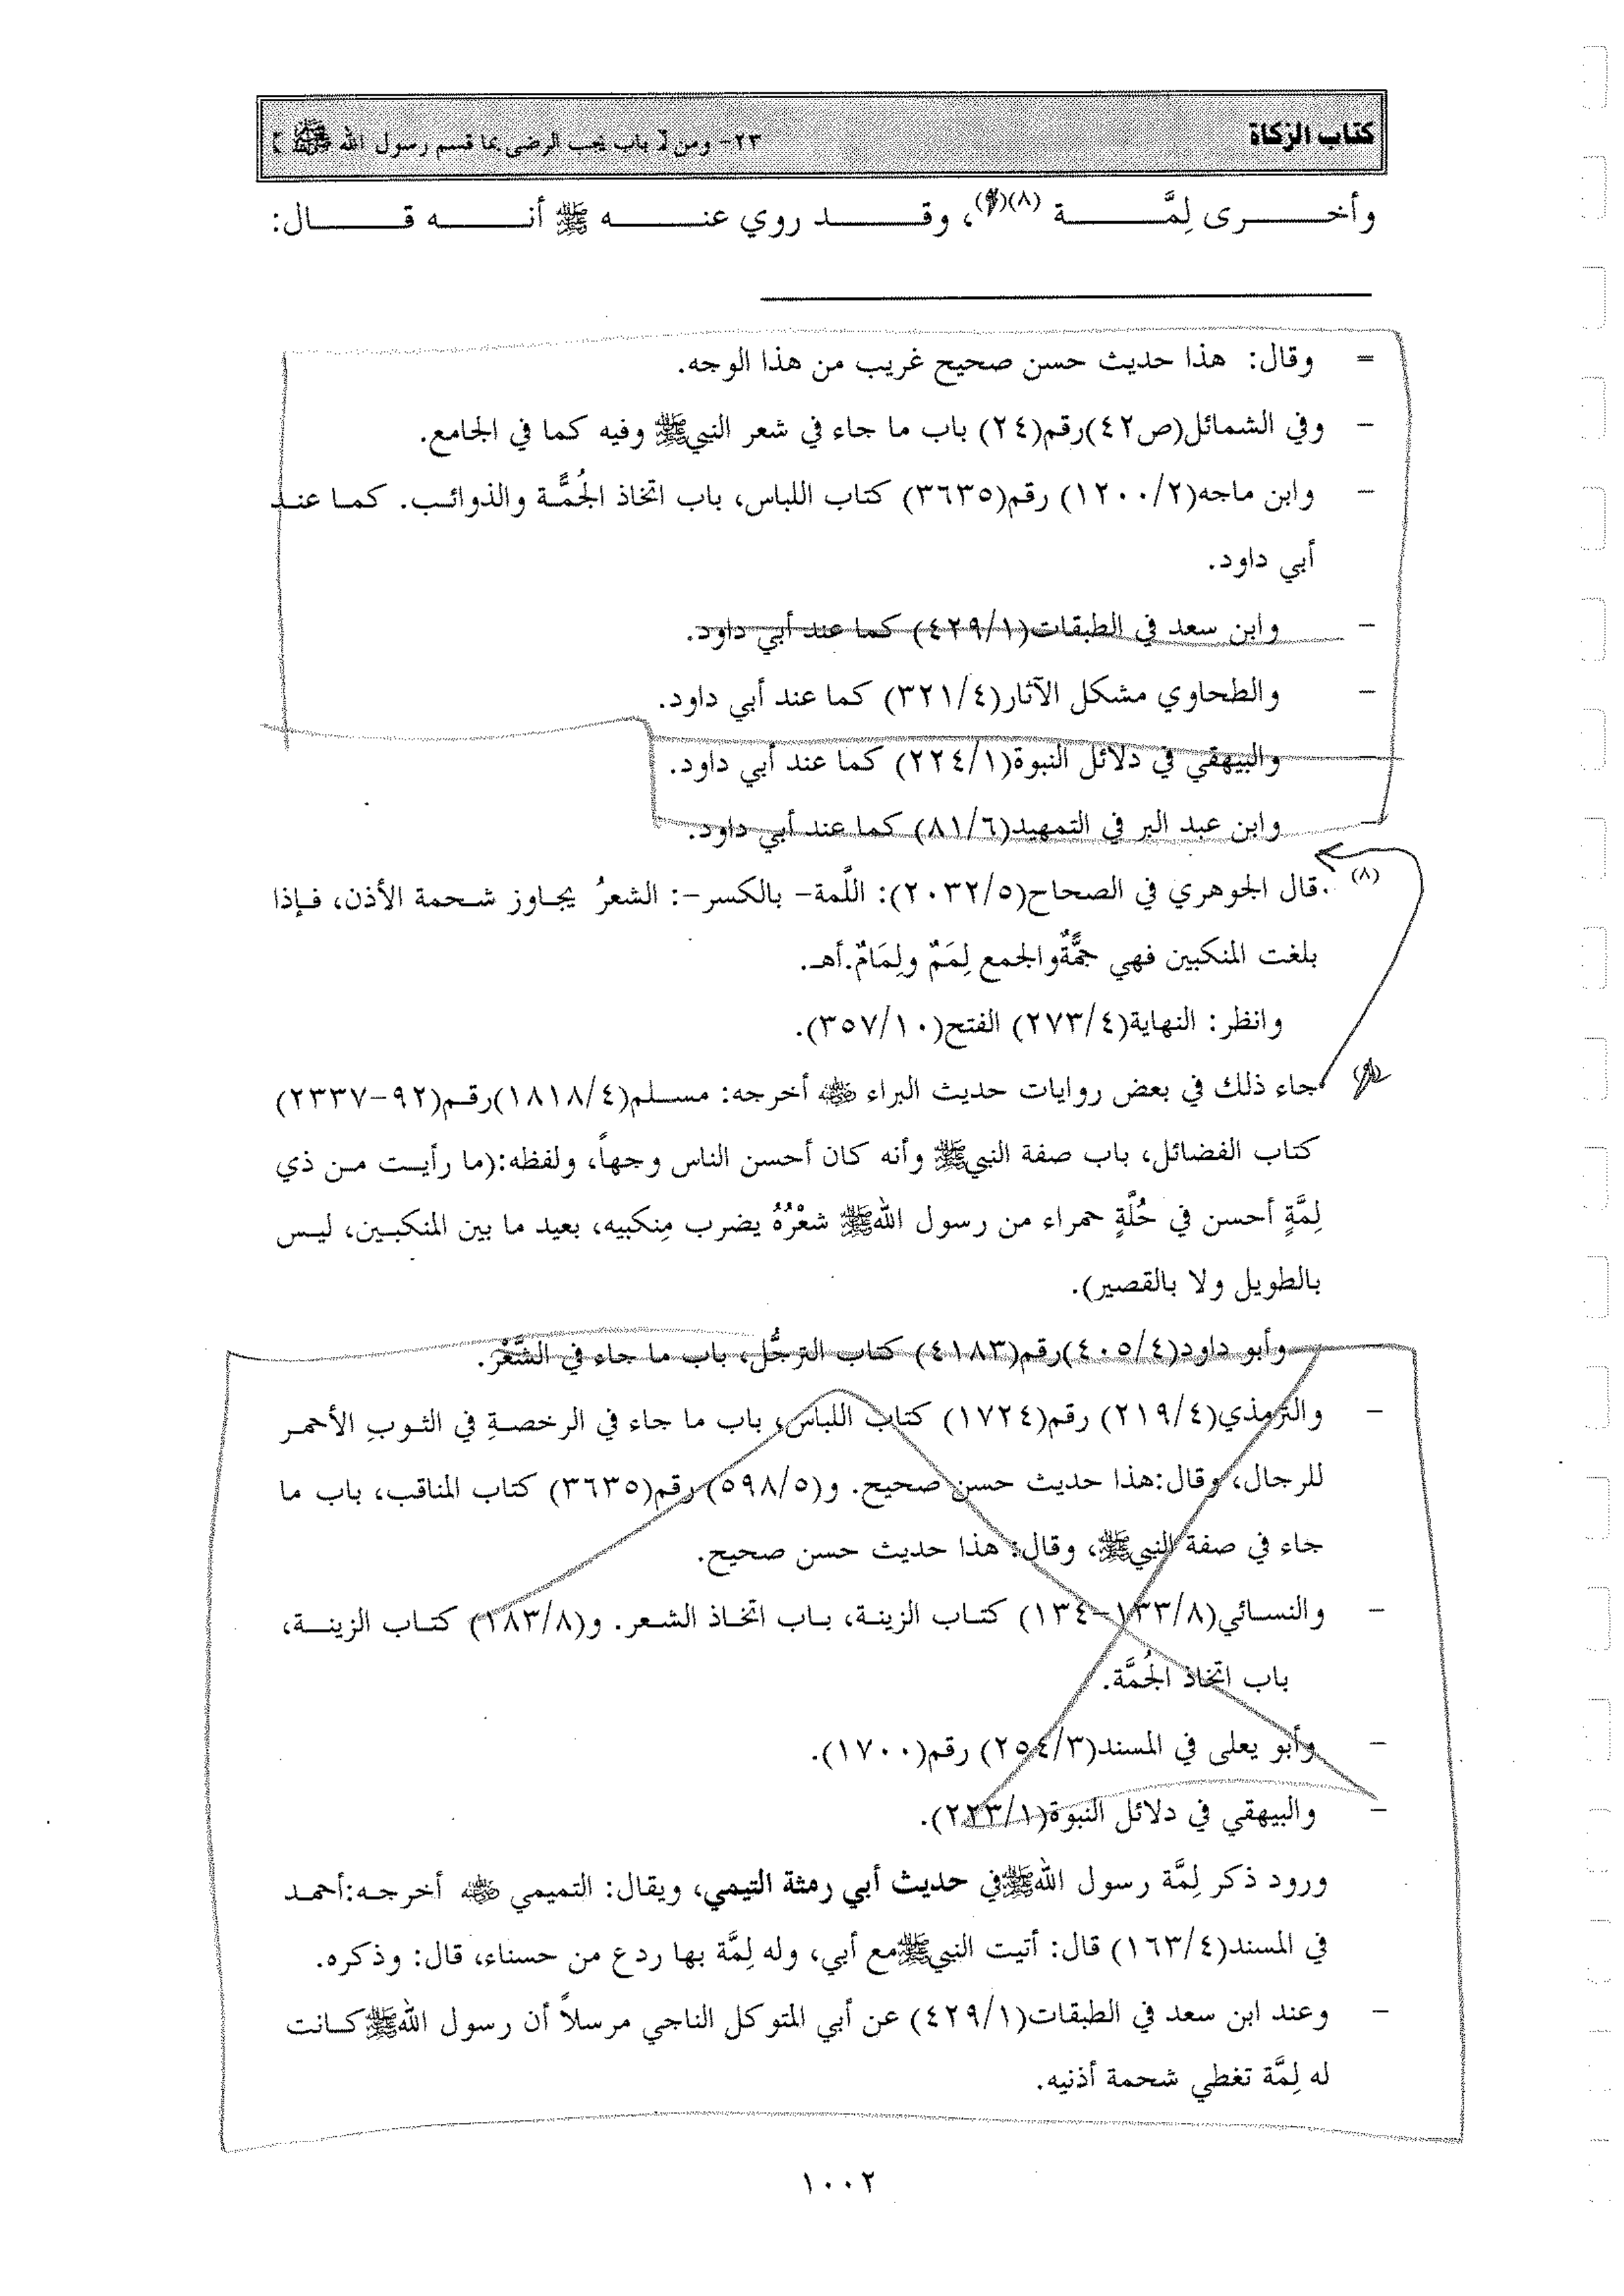 كتاب الزكاة
٢٣- ومن [ باب يجب الرضى بما قسم رسول الله ﷺ ]
وأخرى لِمَّة (٨)، وقد روي عنه ﷺ أنه قال:
= وقال: هذا حديث حسن صحيح غريب من هذا الوجه.
- وفي الشمائل(ص٤٢)رقم(٢٤) باب ما جاء في شعر النبي ﷺ وفيه كما في الجامع.
- وابن ماجه(١٢٠٠/٢) رقم(٣٦٣٥) كتاب اللباس، باب اتخاذ الجُمَّة والذوائب. كما عند
أبي داود.
- وابن سعد في الطبقات(٤٢٩/١) كما عند أبي داود.
- والطحاوي مشكل الآثار(٣٢١/٤) كما عند أبي داود.
- والبيهقي في دلائل النبوة(٢٢٤/١) كما عند أبي داود.
- وابن عبد البر في التمهيد(٨١/٦) كما عند أبي داود.
(٨) قال الجوهري في الصحاح(٢٠٣٢/٥): اللَّمة- بالكسر-: الشعرُ يجاوز شحمة الأذن، فإذا
بلغت المنكبين فهي جمَّةٌ والجمع لِمَمٌ ولِمَامٌ.أهـ.
وانظر: النهاية(٢٧٣/٤) الفتح(٣٥٧/١٠).
جاء ذلك في بعض روايات حديث البراء ﷺ أخرجه: مسلم(١٨١٨/٤)رقم(٩٢-٢٣٣٧)
كتاب الفضائل، باب صفة النبي ﷺ وأنه كان أحسن الناس وجهاً، ولفظه:(ما رأيت من ذي
لِمَّةٍ أحسن في حُلَّةٍ حمراء من رسول الله ﷺ شعْرُهُ يضرب مِنكبيه، بعيد ما بين المنكبين، ليس
بالطويل ولا بالقصير).
وأبو داود(٤٠٥/٤)رقم(٤١٨٣) كتاب الترجُّل، باب ما جاء في الشَّعْر.
- والترمذي(٢١٩/٤) رقم(١٧٢٤) كتاب اللباس، باب ما جاء في الرخصةِ في الثوبِ الأحمر
للرجال، وقال:هذا حديث حسن صحيح. و(٥٩٨/٥) رقم(٣٦٣٥) كتاب المناقب، باب ما
جاء في صفة النبي ﷺ، وقال: هذا حديث حسن صحيح.
- والنسائي(١٣٣/٨-١٣٤) كتاب الزينة، باب اتخاذ الشعر. و(١٨٣/٨) كتاب الزينة،
باب اتخاذ الجُمَّة.
- وأبو يعلى في المسند(٢٥٤/٣) رقم(١٧٠٠).
- والبيهقي في دلائل النبوة(٢٢٣/١).
ورود ذكر لِمَّة رسول الله ﷺ في حديث أبي رمثة التيمي، ويقال: التميمي ﷺ أخرجه:أحمد
في المسند(١٦٣/٤) قال: أتيت النبي ﷺ مع أبي، وله لِمَّة بها ردع من حسناء، قال: وذكره.
- وعند ابن سعد في الطبقات(٤٢٩/١) عن أبي المتوكل الناجي مرسلاً أن رسول الله ﷺ كانت
له لِمَّة تغطي شحمة أذنيه.
١٠٠٢